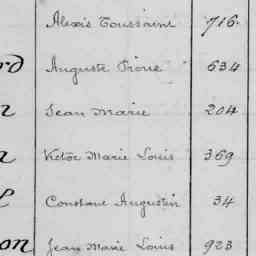 Alexis Toussaint 716.
rd Auguste Pierre 634
n Jean Marie 204
n Victor Marie Louis 369
l Constant Augustin 34
on Jean Marie Louis 923